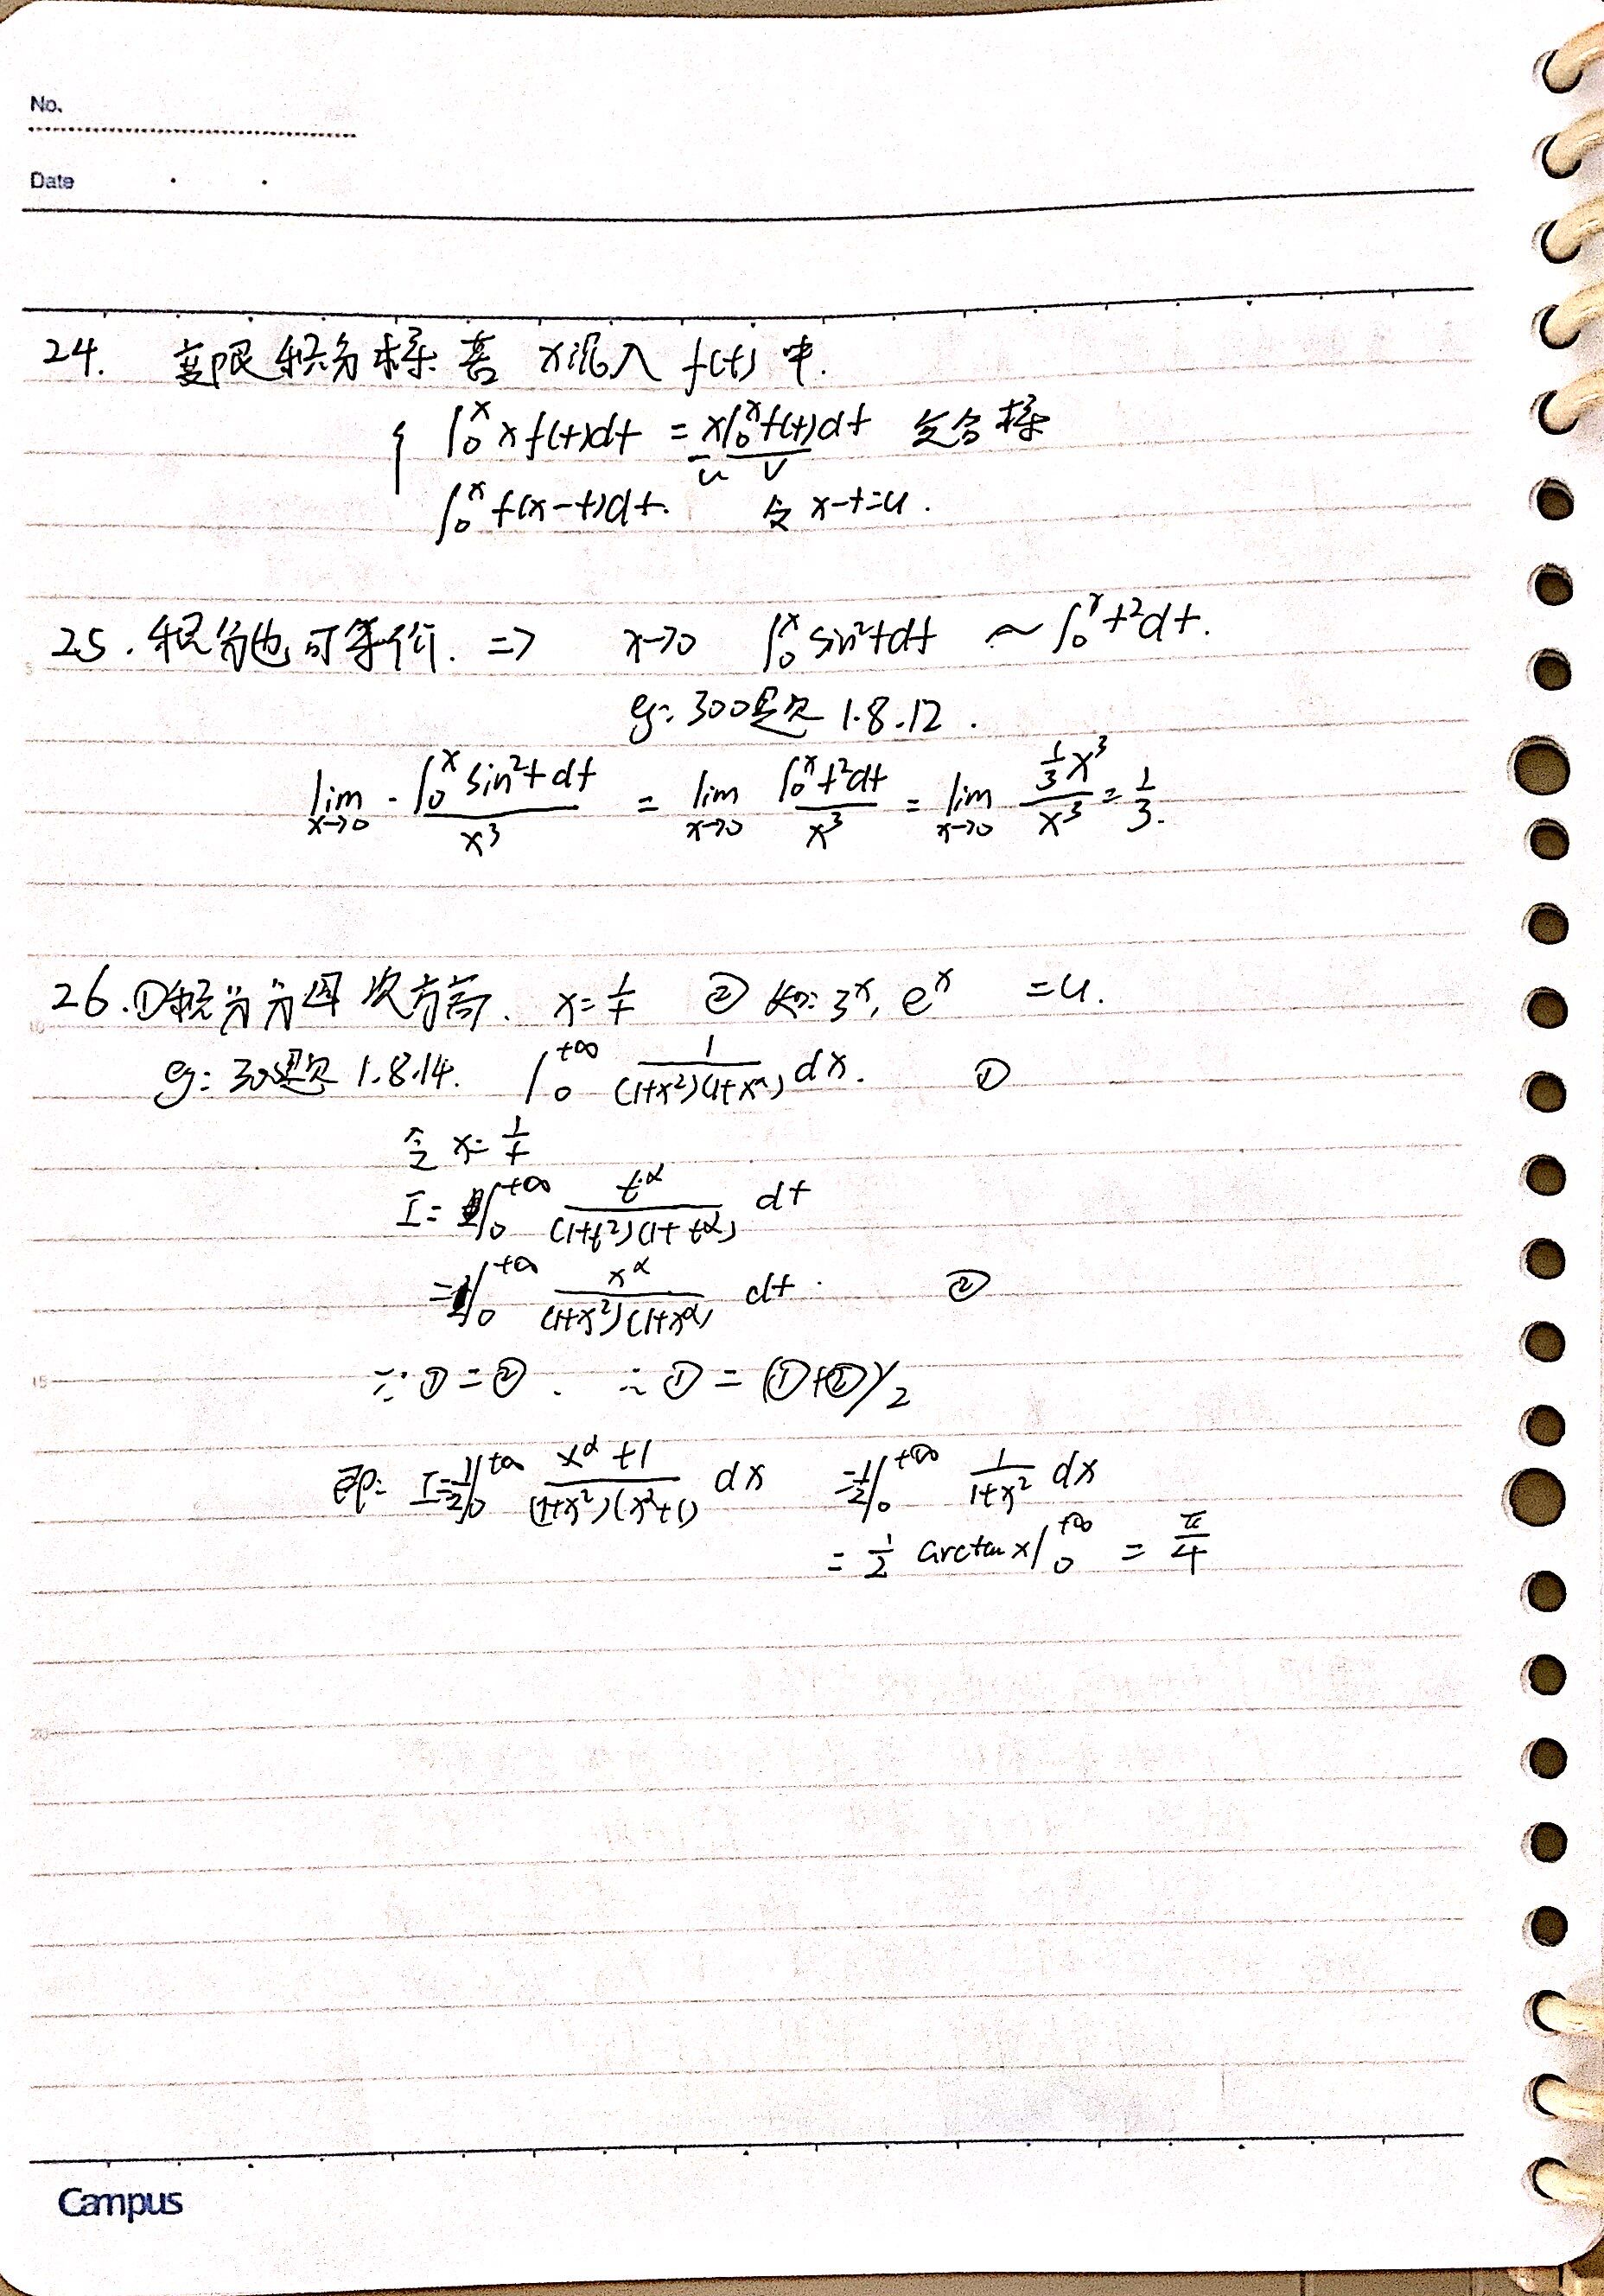 No.
Date
24. 变限积分求导: 若 x混入 f(t) 中.
{ ∫₀ˣ x f(t)dt = x∫₀ˣ f(t)dt 复合求导
u v
∫₀ˣ f(x-t)dt. 令 x-t=u.
25. 积分也可等价. => x→0 ∫₀ˣ sin²t dt ~ ∫₀ˣ t²dt.
eg: 300题 1.8.12.
lim x→0 ∫₀ˣ sin²t dt / x³ = lim x→0 ∫₀ˣ t²dt / x³ = lim x→0 (1/3 x³) / x³ = 1/3.
26. ①积分分母次方高. x=1/t ② 如: 3ˣ, eˣ =u.
eg: 300题 1.8.14. ∫₀^{+∞} 1/((1+x²)(1+x^α)) dx. ①
令 x=1/t
I= ∫₀^{+∞} t^α/((1+t²)(1+t^α)) dt
= ∫₀^{+∞} x^α/((1+x²)(1+x^α)) dt. ②
∵ ①=②. ∴ ① = (①+②)/2
即: I=1/2 ∫₀^{+∞} (x^α+1)/((1+x²)(x^α+1)) dx =1/2 ∫₀^{+∞} 1/(1+x²) dx
= 1/2 arctan x |₀^{+∞} = π/4
5
10
15
20
Campus